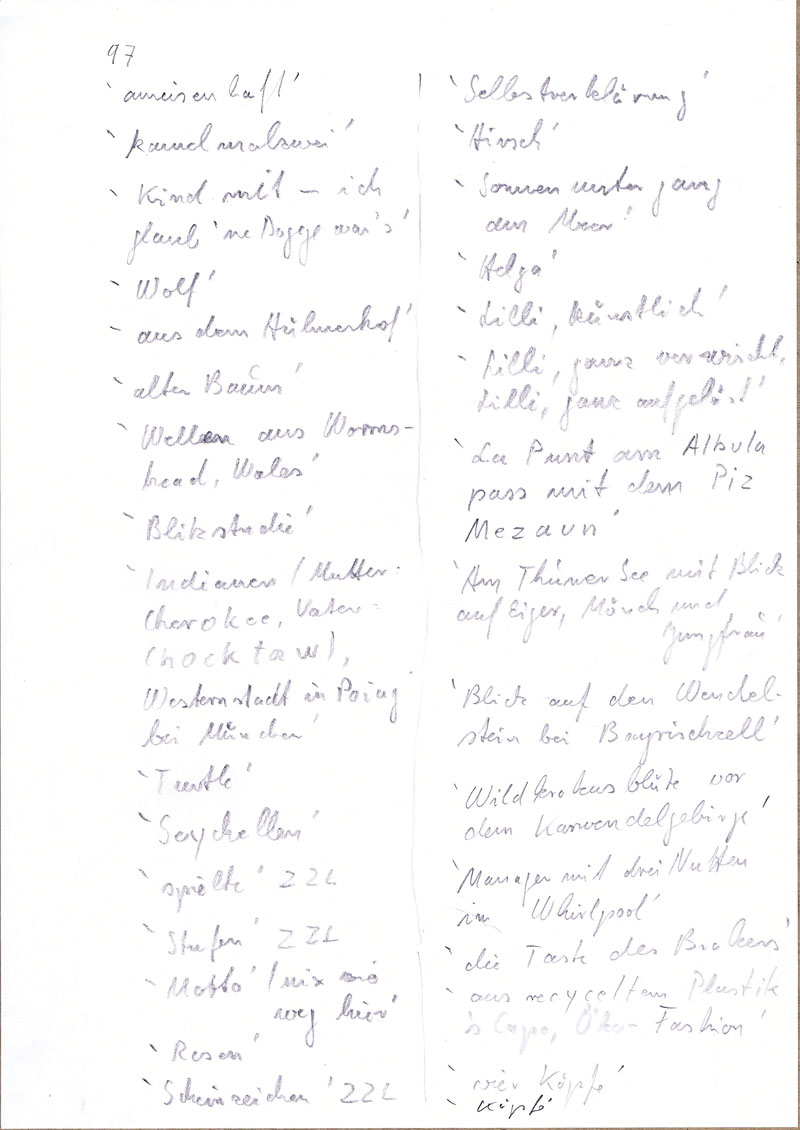 97
`ameisenhaft´
`kamelnralswei´
`Kind mit – ich
glaub 'ne Dogge war's´
`Wolf´
`aus dem Hühnerhof´
`alter Baum´
`Wellen aus Worms-
head, Wales´
`Blitzstudie´
`Indianer (Mutter:
Cherokee, Vater:
Chocktaw),
Westernstadt in Poing
bei München´
`Turtle´
`Seychellen´
`spielte´ ZZL
`Stufen´ ZZL
`Motto´ / nix wie
weg hier´
`Rosen´
`Scheinzeichen´ ZZL
`Selbstverklärung´
`Hirsch´
`Sonnenuntergang
am Meer´
`Helga´
`Lilli, künstlich´
`Lilli, ganz verwischt,
Lilli, ganz aufgelöst´
`La Punt am Albula
pass mit dem Piz
Mezaun´
`Am Thuner See mit Blick
auf Eiger, Mönch und
Jungfrau´
`Blick auf den Wendel-
stein bei Bayrischzell´
`Wildkrokusblüte vor
dem Karwendelgebirge´
`Manager mit drei Nutten
im Whirlpool´
`die Taste des Brokers´
`aus recyceltem Plastik
's Cape, Öko-Fashion´
`vier Köpfe´
`Köpfe´